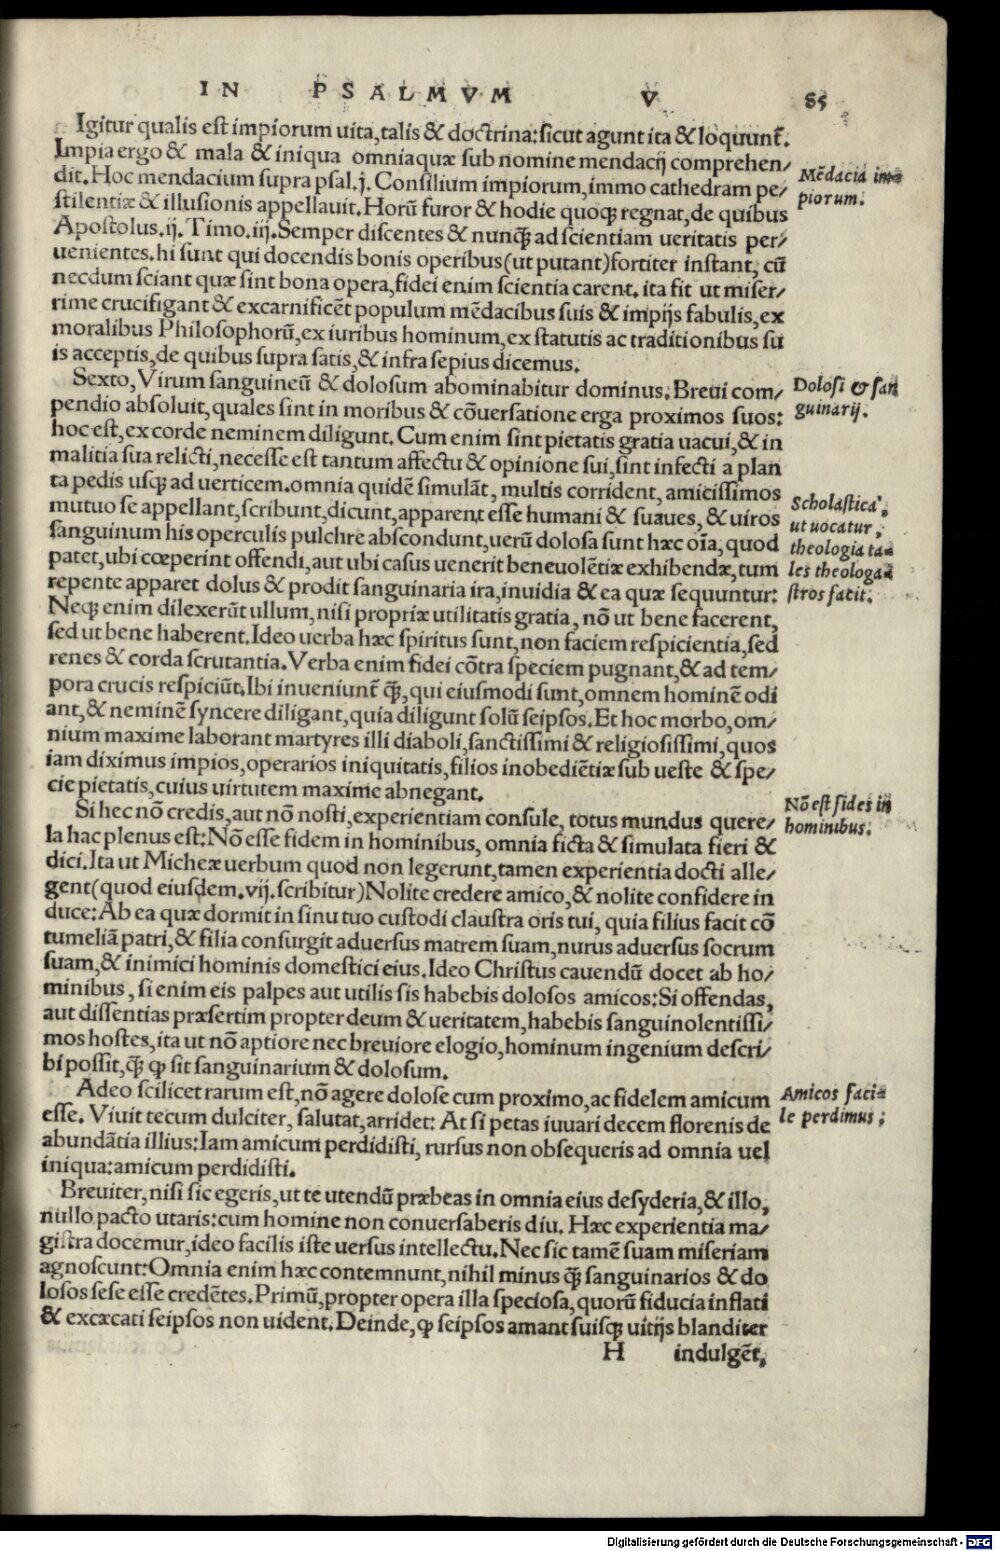 IN PSALMVM V 85
Igitur qualis est impiorum uita,talis & doctrina:sicut agunt ita & loquunt᷑.
Impia ergo & mala & iniqua omnia quæ sub nomine mendacij comprehen/
dit. Hoc mendacium supra psal.j. Consilium impiorum,immo cathedram pe/
stilentiæ & illusionis appellauit. Horũ furor & hodie quoqꝫ regnat,de quibus
Apostolus.ij. Timo.iij. Semper discentes & nunꝙ̃ ad scientiam ueritatis per/
uenientes.hi sunt qui docendis bonis operibus(ut putant)fortiter instant, cũ
necdum sciant quæ sint bona opera,fidei enim scientia carent. ita fit ut miser/
rime crucifigant & excarnificẽt populum mẽdacibus suis & impijs fabulis,ex
moralibus Philosophorũ,ex iuribus hominum,ex statutis ac traditionibus su
is acceptis,de quibus supra satis,& infra sepius dicemus.
Sexto,Virum sanguineũ & dolosum abominabitur dominus. Breui com/
pendio absoluit,quales sint in moribus & cõuersatione erga proximos suos:
hoc est,ex corde neminem diligunt. Cum enim sint pietatis gratia uacui,& in
malitia sua relicti,necesse est tantum affectu & opinione sui,sint infecti a plan
ta pedis usqꝫ ad uerticem.omnia quidẽ simulãt, multis corrident, amicissimos
mutuo se appellant,scribunt,dicunt,apparent esse humani & suaues, & uiros
sanguinum his operculis pulchre abscondunt,uerũ dolosa sunt hæc oĩa, quod
patet,ubi cœperint offendi,aut ubi casus uenerit beneuolẽtiæ exhibendæ,tum
repente apparet dolus & prodit sanguinaria ira,inuidia & ea quæ sequuntur:
Neqꝫ enim dilexerũt ullum,nisi propriæ utilitatis gratia, nõ ut bene facerent,
sed ut bene haberent. Ideo uerba hæc spiritus sunt,non faciem respicientia,sed
renes & corda scrutantia. Verba enim fidei cõtra speciem pugnant,& ad tem/
pora crucis respiciũt. Ibi inueniunt᷑ ꝙ̃, qui eiusmodi sunt,omnem hominẽ odi
ant,& neminẽ syncere diligant,quia diligunt solũ seipsos. Et hoc morbo,om/
nium maxime laborant martyres illi diaboli,sanctissimi & religiosissimi,quos
iam diximus impios,operarios iniquitatis,filios inobediẽtiæ sub ueste & spe/
cie pietatis,cuius uirtutem maxime abnegant.
Si hec nõ credis,aut nõ nosti,experientiam consule, totus mundus quere/
la hac plenus est: Nõ esse fidem in hominibus, omnia ficta & simulata fieri &
dici. Ita ut Micheæ uerbum quod non legerunt,tamen experientia docti alle/
gent(quod eiusdem.vij.scribitur)Nolite credere amico,& nolite confidere in
duce: Ab ea quæ dormit in sinu tuo custodi claustra oris tui, quia filius facit cõ
tumeliã patri,& filia consurgit aduersus matrem suam,nurus aduersus socrum
suam,& inimici hominis domestici eius. Ideo Christus cauendũ docet ab ho/
minibus, si enim eis palpes aut utilis sis habebis dolosos amicos: Si offendas,
aut dissentias præsertim propter deum & ueritatem,habebis sanguinolentissi/
mos hostes,ita ut nõ aptiore nec breuiore elogio,hominum ingenium descri/
bi possit,ꝙ̃ ꝙ sit sanguinarium & dolosum.
Adeo scilicet rarum est,nõ agere dolose cum proximo,ac fidelem amicum
esse. Viuit tecum dulciter, salutat,arridet: At si petas iuuari decem florenis de
abundãtia illius: Iam amicum perdidisti, rursus non obsequeris ad omnia uel
iniqua:amicum perdidisti.
Breuiter,nisi sic egeris,ut te utendũ præbeas in omnia eius desyderia,& illo,
nullo pacto utaris:cum homine non conuersaberis diu. Hæc experientia ma/
gistra docemur,ideo facilis iste uersus intellectu. Nec sic tamẽ suam miseriam
agnoscunt: Omnia enim hæc contemnunt,nihil minus ꝙ̃ sanguinarios & do
losos sese esse credẽtes. Primũ,propter opera illa speciosa,quorũ fiducia inflati
& excæcati seipsos non uident. Deinde,ꝙ seipsos amant suisqꝫ uitijs blanditer
H indulgẽt,
Mẽdacia im=
piorum.
Dolosi & san
guinarij.
Scholastica,
ut uocatur,
theologia ta=
les theologa=
stros facit.
Nõ est fides in
hominibus.
Amicos faci=
le perdimus;
Digitalisierung gefördert durch die Deutsche Forschungsgemeinschaft - DFG